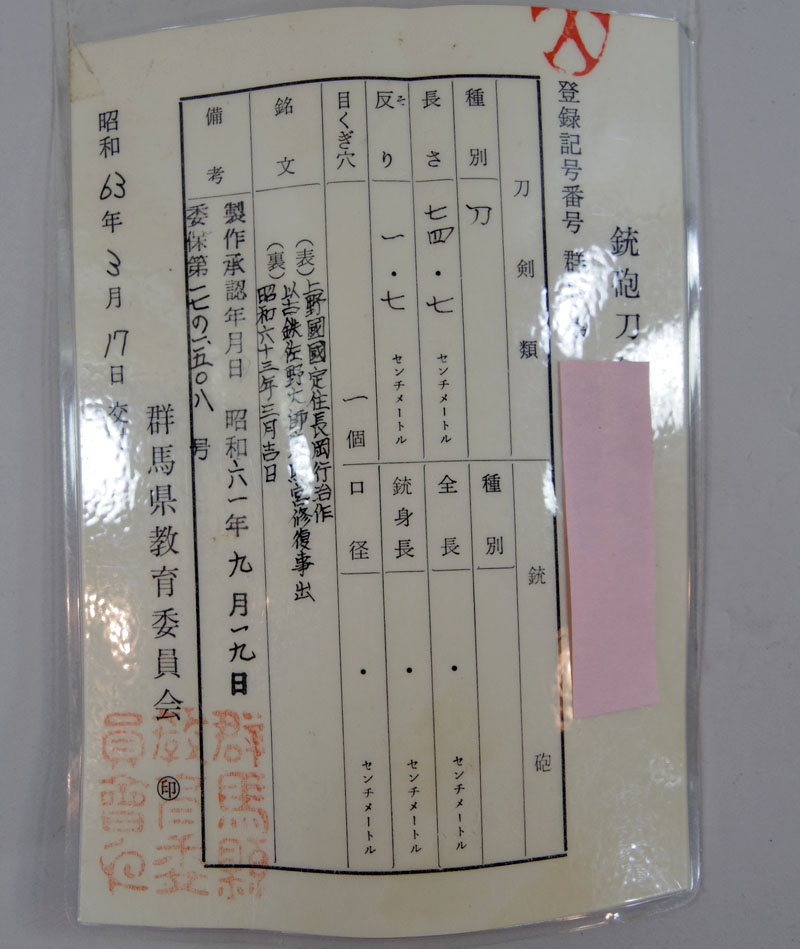 銃砲刀
登録記号番号 群
刀剣類
種別 刀
長さ 七四・七 センチメートル
反り 一・七 センチメートル
そ
目くぎ穴 一個
銘文
(表)上野國國定住長岡行治作
(裏)以古鉄佐野大師 宮修復事出
昭和六十三年三月吉日
備考
製作承認年月日 昭和六一年九月一九日
委保第一七の六五〇八号
銃砲
種別
全長 ・ センチメートル
銃身長 ・ センチメートル
口径 ・ センチメートル
昭和63年3月17日交
群馬県教育委員会 ㊞
群馬縣
教育委
員會